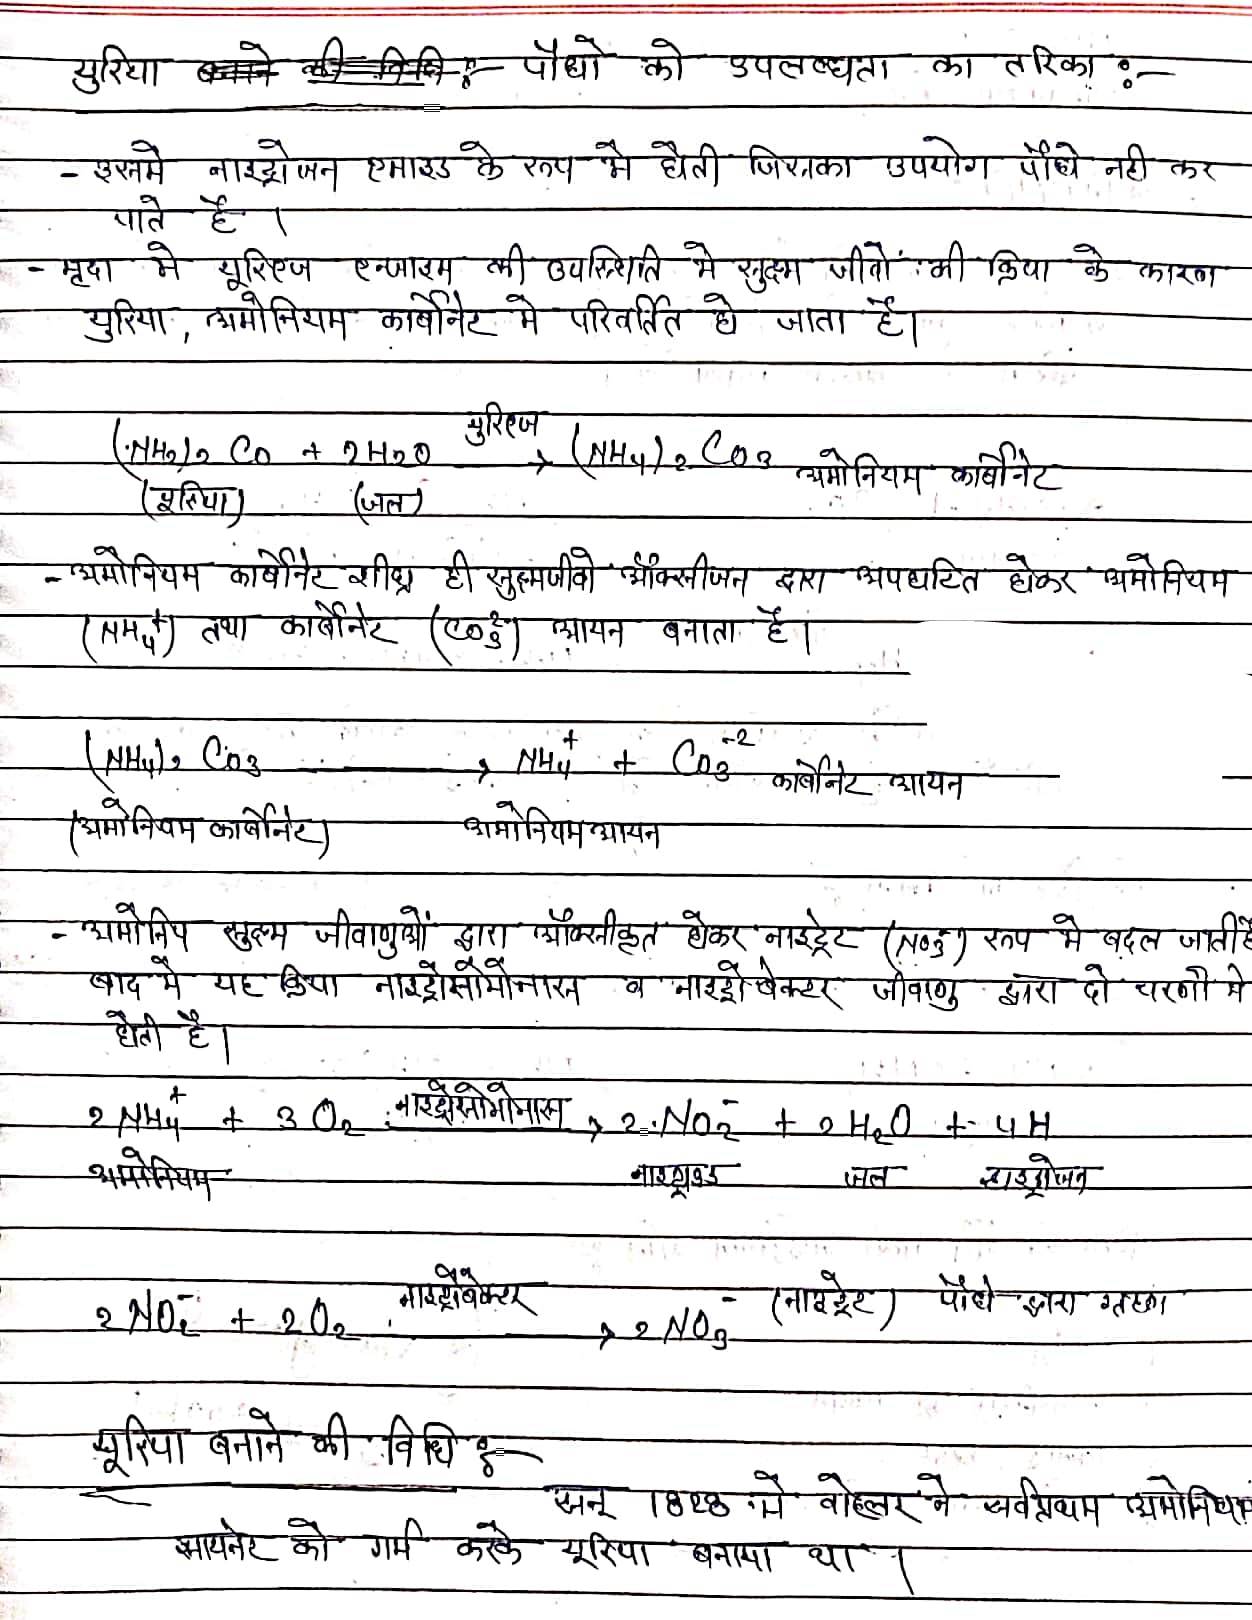 युरिया बनाने की विधि :- पौधो को उपलब्धता का तरिका :-
- इसमे नाइट्रोजन एमाइड के रूप मे होती जिसका उपयोग पौधे नही कर
पाते है ।
- मृदा मे यूरिएज एन्जाइम की उपस्थिति मे सुक्ष्म जीवों की क्रिया के कारण
युरिया, अमोनियम कार्बोनेट मे परिवर्तित हो जाता है।
(NH2)2 CO + 2H2O युरिएज → (NH4)2 CO3 अमोनियम कार्बोनेट
(युरिया) (जल)
- अमोनियम कार्बोनेट शीघ्र ही सुक्ष्मजीवो ऑक्सीजन द्वारा अपघटित होकर अमोनियम
(NH4+) तथा कार्बोनेट (CO3 2-) आयन बनाता है।
(NH4)2 CO3 → NH4+ + CO3-2 कार्बोनेट आयन
(अमोनियम कार्बोनेट) अमोनियम आयन
- अमोनिय सुक्ष्म जीवाणुओं द्वारा ऑक्सीकृत होकर नाइट्रेट (NO3-) रूप मे बदल जाती है
बाद मे यह क्रिया नाइट्रोसोमोनास व नाइट्रोबेक्टर जीवाणु द्वारा दो चरणो मे
होती है।
2NH4+ + 3O2 नाइट्रोसोमोनास → 2NO2- + 2H2O + 4H
अमोनियम नाइट्राइड जल हाइड्रोजन
2NO2- + 2O2 नाइट्रोबेक्टर → 2NO3- (नाइट्रेट) पौधे द्वारा ग्रहण
यूरिया बनाने की विधि :-
सन् 1828 मे वोहलर ने सर्वप्रथम अमोनियम
सायनेट को गर्म करके यूरिया बनाया था ।